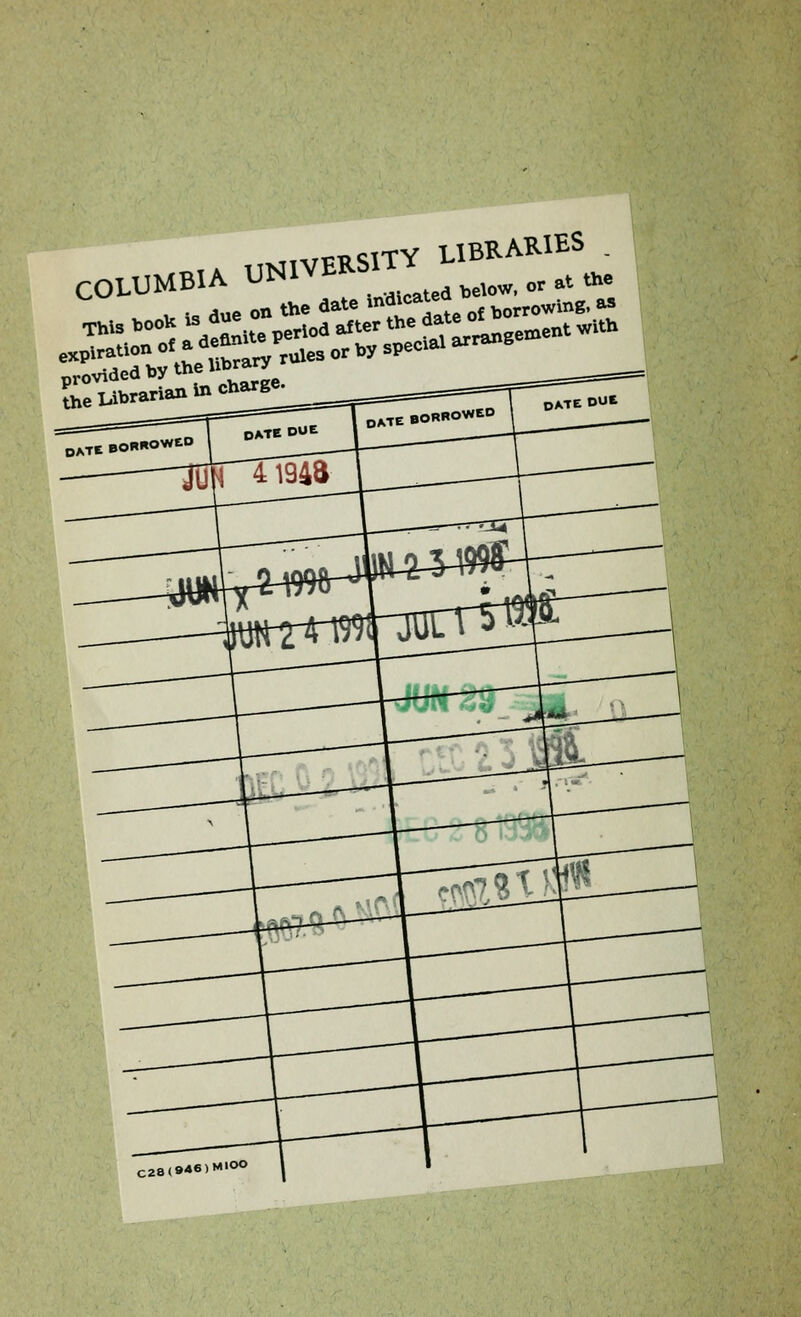 COLUMBIA UNIVERSITY LIBRARIES
This book is due on the date indicated below, or at the
expiration of a definite period after the date of borrowing, as
provided by the library rules or by special arrangement with
the Librarian in charge.
DATE BORROWED DATE DUE DATE BORROWED DATE DUE
JUN 4 1948
JUN 2 1998 JUN 23 1998
JUN 24 199 JUL 15 1998
JUN 29
DEC 02 DEC 23
DEC 28 1998
C28(946)M100